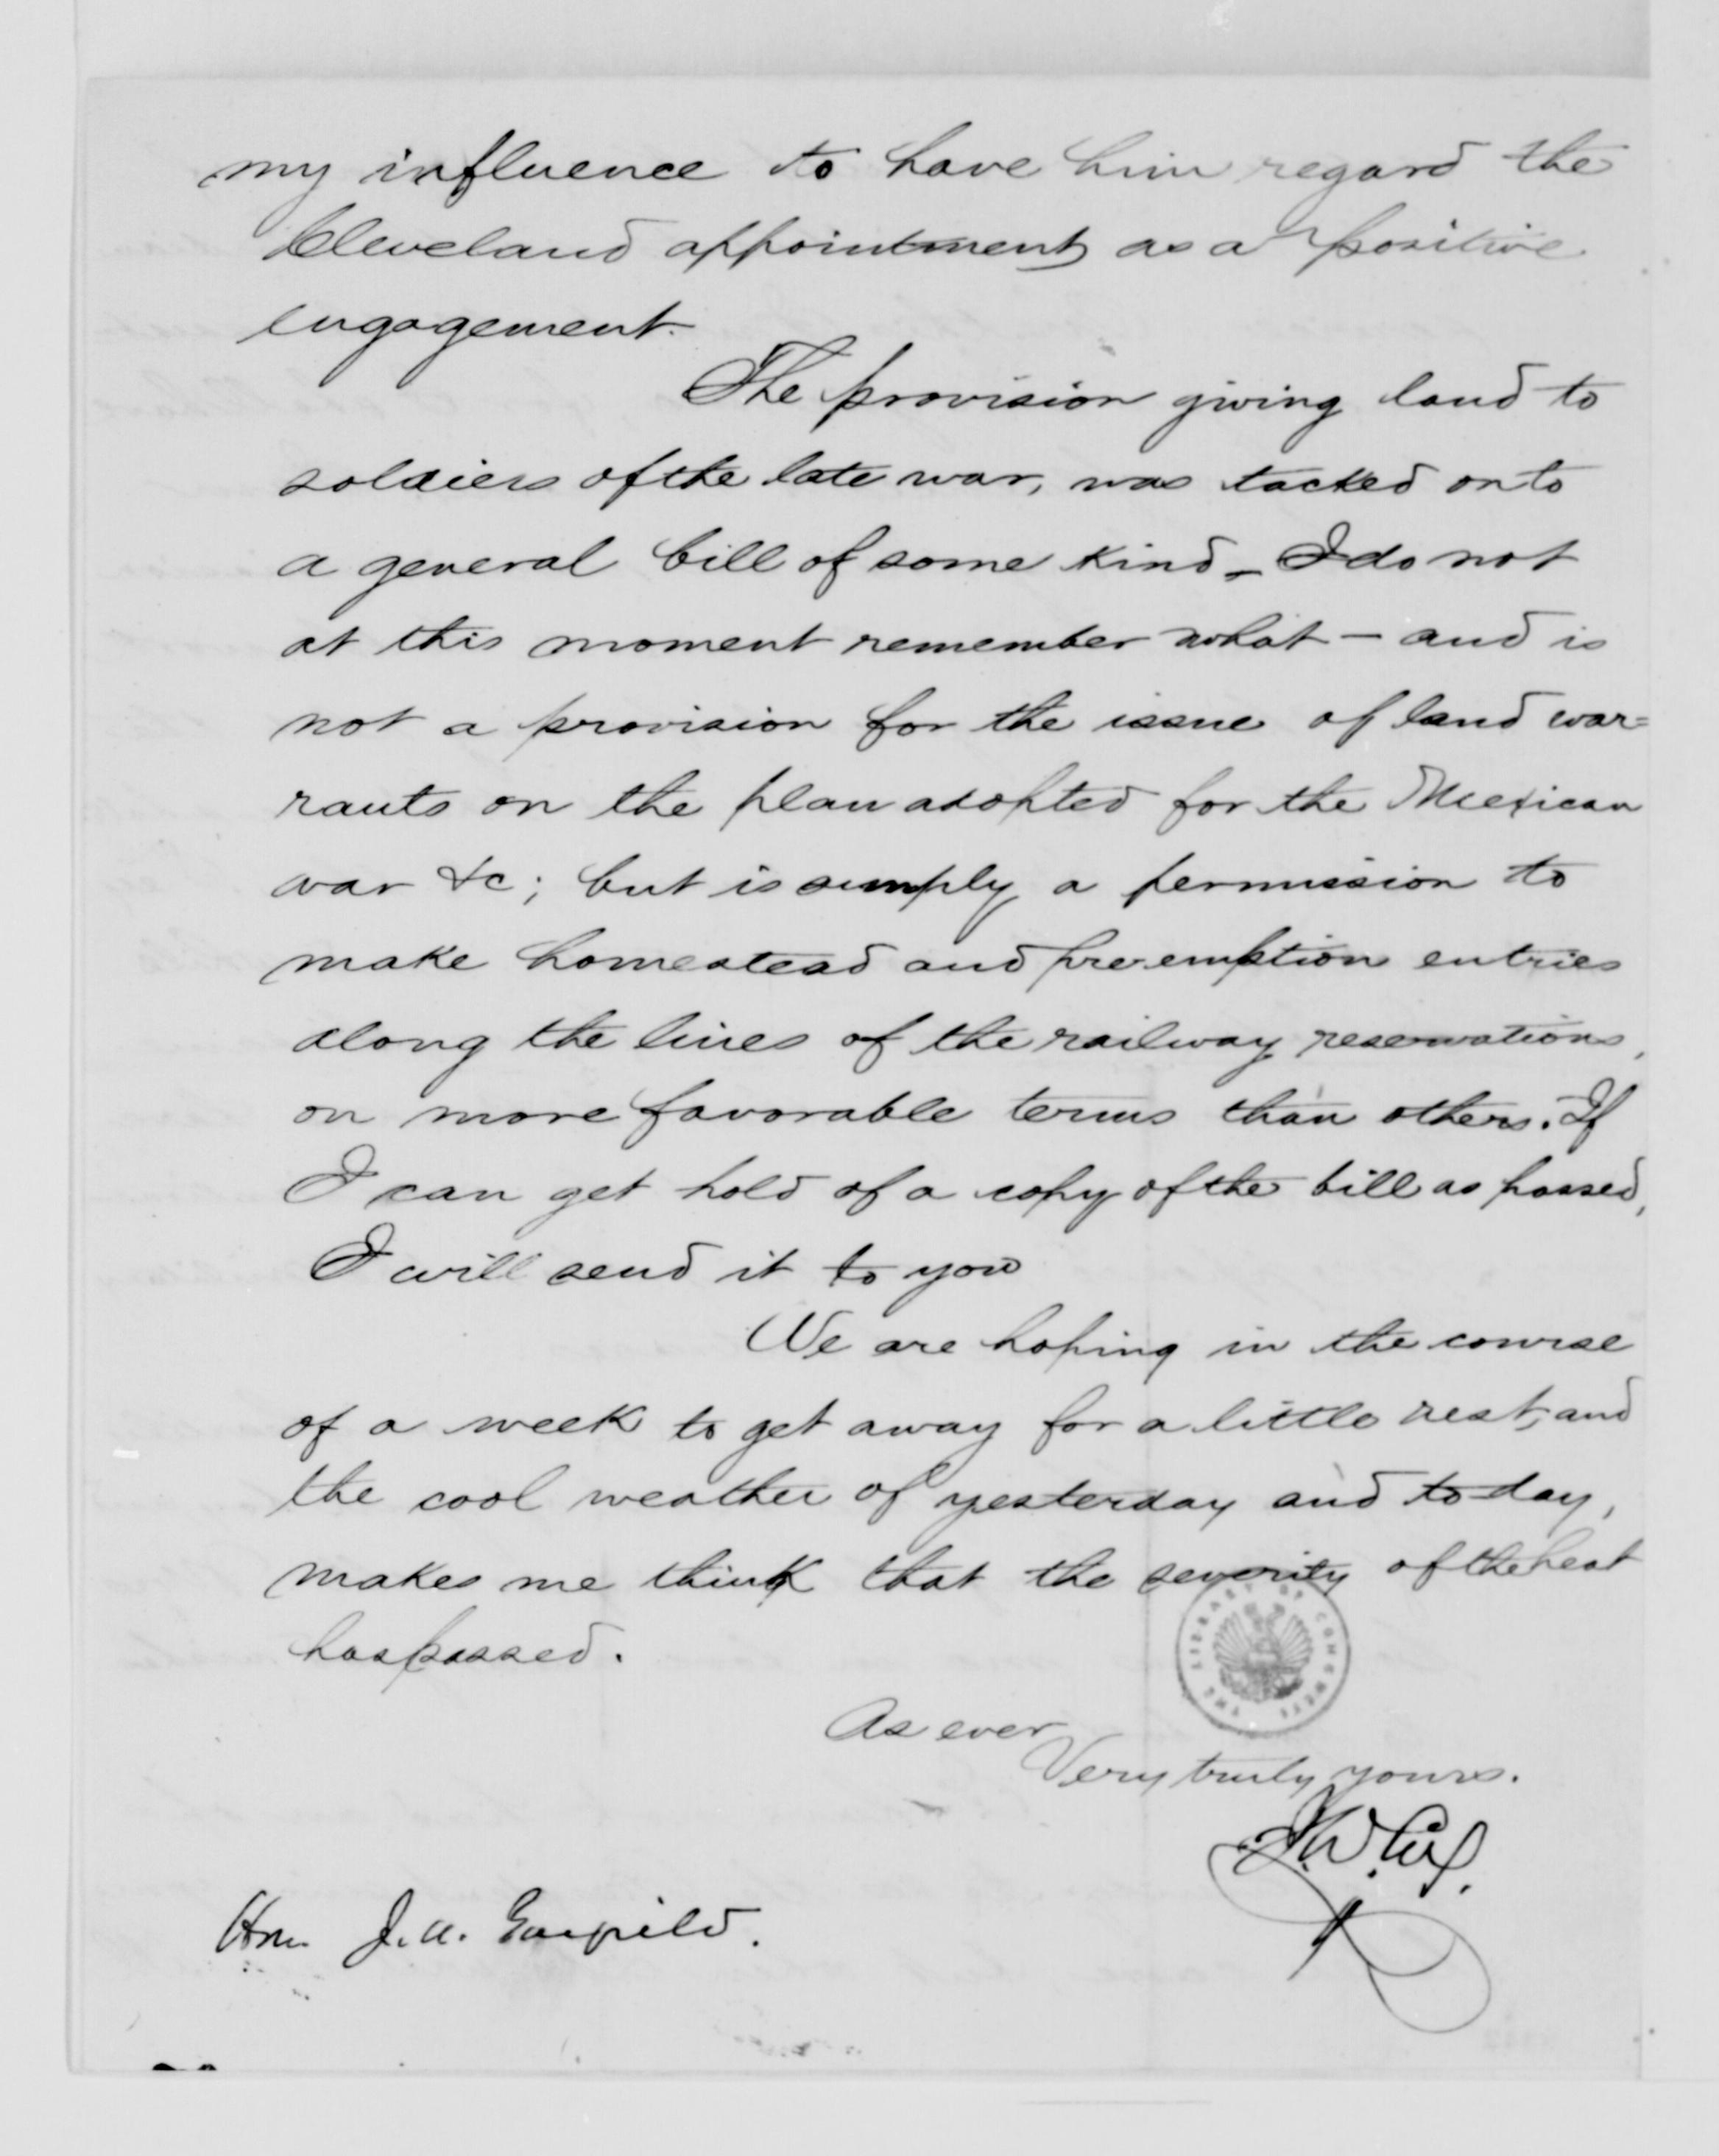 my influence to have him regard the
Cleveland appointment as a positive
engagement.
The provision giving land to
soldiers of the late war, was tacked onto
a general bill of some kind – I do not
at this moment remember what – and is
not a provision for the issue of land war=
rants on the plan adopted for the Mexican
war &c; but is simply a permission to
make homestead and pre-emption entries
along the lines of the railway reservations,
on more favorable terms than others. If
I can get hold of a copy of the bill as passed,
I will send it to you
We are hoping in the course
of a week to get away for a little rest, and
the cool weather of yesterday and to-day,
makes me think that the severity of the heat
has passed.
THE LIBRARY OF CONGRESS
As ever
Very truly yours.
J. D. Cox.
Hon. J. A. Garfield.